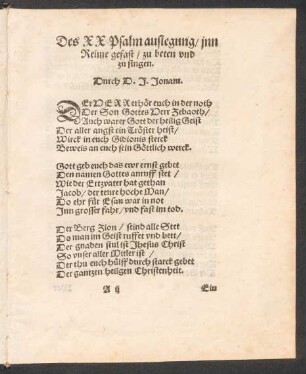 Des XX Psalm auslegung/ jnn
Reime gefast/ zu beten vnd
zu singen.
Durch D. J. Jonam.
DEr HERR erhör euch in der noth
Der Son Gottes Herr Zebaoth/
Auch warer Gott der heilig Geist
Der aller angst ein Tröster heist/
Wirck in euch Gidionis sterck
Beweis an euch sein Göttlich werck.
Gott geb euch das ewr ernst gebet
Den namen Gottes anruff stet/
Wie der Ertzvater hat gethan
Jacob/ der teure hocht Man/
Do ehr für Esau war in not
Inn grosser fahr/ vnd fast im tod.
Der Berg Zion/ seind alle Stet
Do man im Geist ruffet vnd bett/
Der gnaden stul ist Jhesus Christ
So vnser aller Mitler ist/
Der thu euch hülff durch starck gebet
Der gantzen heilgen Christenheit.
A ij
Ein